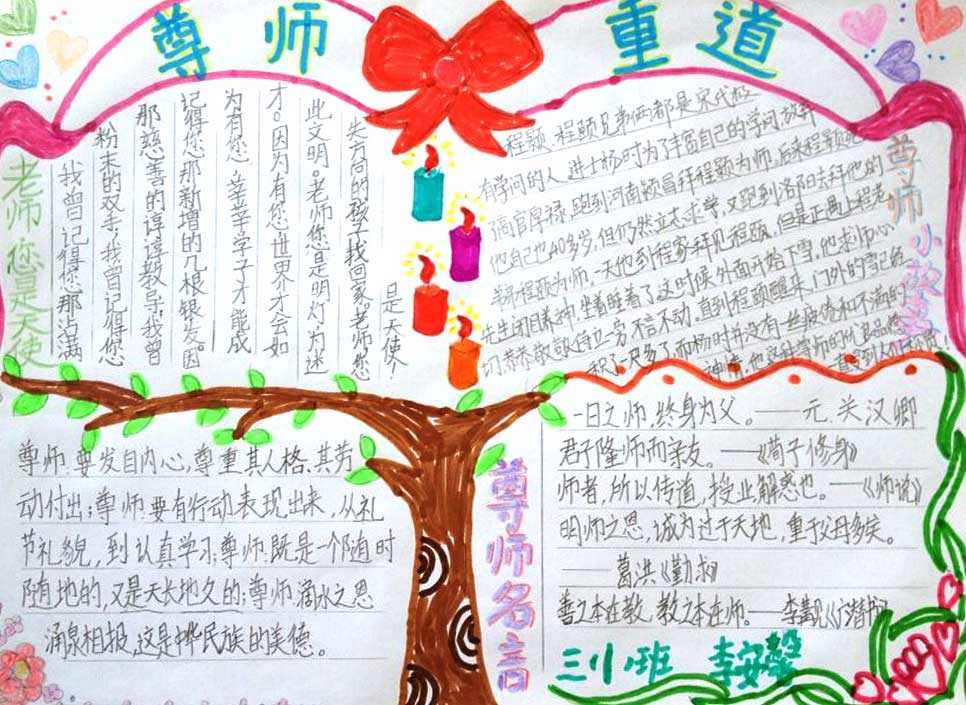 尊师 重道
老师您是天使
我曾记得您那沾满
粉末的双手；我曾记得您
那慈善的谆谆教导；我曾
记得您那新增的几根银发。因
为有您，莘莘学子才能成
才。因为有您，世界才会如
此文明。老师您是明灯，为迷
失方向的孩子找回家。老师您
是天使！
尊师小故事
程颢、程颐兄弟俩都是宋代极
有学问的人。进士杨时为了丰富自己的学问，放弃
了高官厚禄，跑到河南颍昌拜程颢为师，后来程颢死
他自己也40多岁，但仍然立志求学，又跑到洛阳去拜他的
弟弟程颐为师。一天他到程家拜见程颐，但是正遇上程老
先生闭目养神，坐着睡着了这时候，外面开始下雪。他求师心
切，恭恭敬敬侍立一旁，不言不动，直到程颐醒来，门外的雪已经
积了一尺多了，而杨时并没有一丝疲倦和不满的
神情，他这种尊师的优良品德
直受到人们称赞！
尊师，要发自内心，尊重其人格、其劳
动付出；尊师，要有行动表现出来，从礼
节礼貌，到认真学习；尊师，既是一个随时
随地的，又是天长地久的；尊师，滴水之恩
涌泉相报，这是中华民族的美德。
尊师名言
一日之师，终身为父。——元、关汉卿
君子隆师而亲友。——《荀子修身》
师者，所以传道，授业解惑也。——《师说》
明师之恩，诚为过于天地，重于父母多矣。
——葛洪《勤求》
善之本在教，教之本在师。——李觏《广潜书》
三小班 李安馨